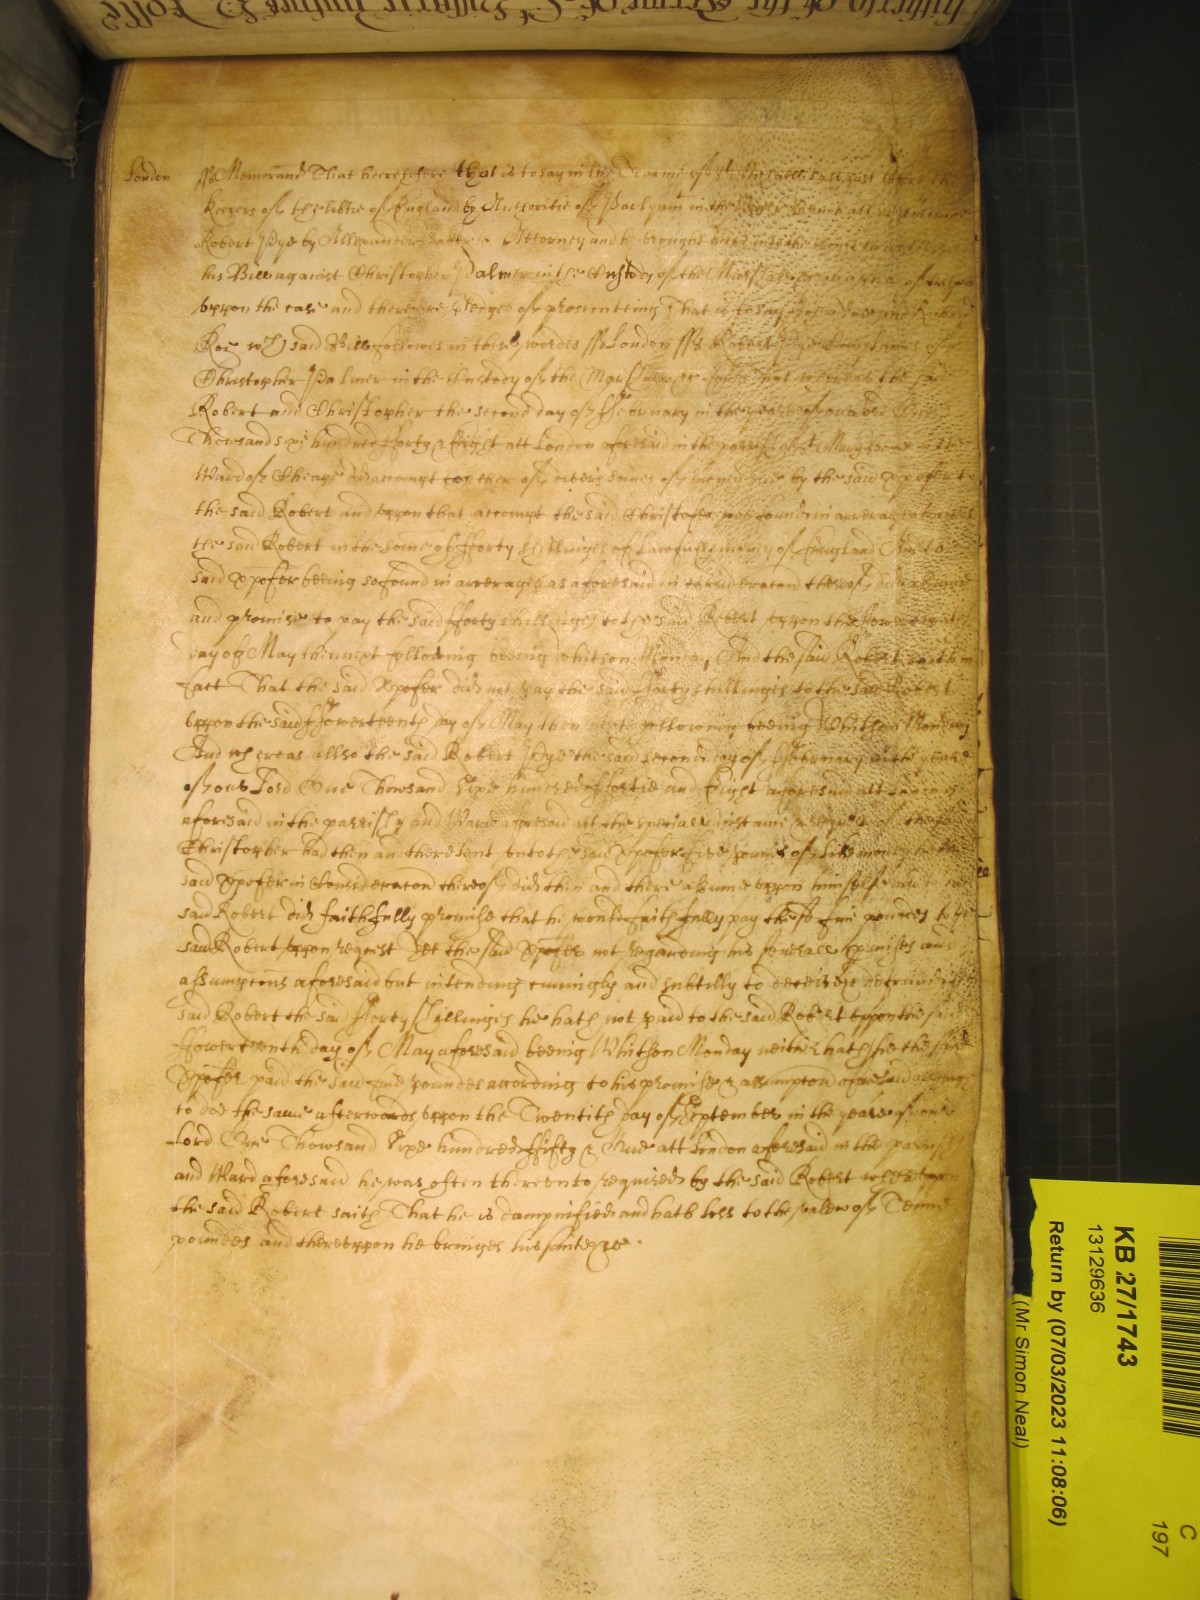 London ss Memorand That heeretofore that is to say in the Tearme of St Michaell last past before the
Keepers of the libtie of England by Authoritie of Parlyamt in the Upper Bench att Westminster came
Robert Pye by Allexander Attorney and brought heere into the Court
his Bill against Christopher Palmer in the Custody of the Marshall &c of a plea
uppon the case and there are pledges of prosecuteing That is to say John Doe and Richard
Roe wch said Bill followes in these words ss London ss Robert Pye Complaines of
Christopher Palmer in the Custody of the Marshall &c for that whereas the said
Robert and Christopher the second day of ffebruary in the yeare of our Lord One
Thowsand sixe hundred fforty & Eight att London aforesaid in the parrish of St Mary Bowe in the
Ward of Cheape did accompt together of divers somes of money due by the said Xpofer to
the said Robert and uppon that accompt the said Christofer was found in arrerages towards
the said Robert in the some of fforty shillinges of Lawfull money of England And the
said Xpofer beeing so found in arrerages as aforesaid in consideracon thereof did assume
and promise to pay the said fforty shillinges to the said Robert uppon the fowerteenth
day of May then next following beeing Whitson Monday And the said Robert saith in
fact That the said Xpofer did not pay the said fforty shillinges to the said Robert
uppon the said ffowerteenth day of May then next following beeing Whitson Monday
And whereas allso the said Robert Pye the said second day of ffebruary in the yeare
of our Lord One Thowsand Sixe hundred ffortie and Eight aforesaid att London
aforesaid in the parrish and Ward aforesaid att the speciall instance & request of the said
Christopher had then and there lent unto the said Xpofer five pounds of like money the
said Xpofer in Consideracon thereof did then and there assume uppon himselfe and to the
said Robert did faithfully promise that he would faithfully pay the sd five pounds to the
said Robert uppon request Yet the said Xpofer not regarding his severall promises and
assumptons aforesaid but intending cuningly and subtilly to deceive & defraud the
said Robert the said fforty shillinges he hath not paid to the said Robert uppon the said
ffowerteenth day of May aforesaid beeing Whitson Monday neither hath he the said
Xpofer paid the said five poundes according to his promise & assumpton aforesaid allthough
to doe the same afterwards uppon the Twentith day of September in the yeare of our
Lord One Thowsand Sixe hundred ffifty & One att London aforesaid in the parrish
and Ward aforesaid he was often thereunto required by the said Robert whereuppon
the said Robert saith That he is dampnified and hath loss to the valew of Tenne
poundes and thereuppon he bringes his suite &c
KB 27/1743
13129636
Return by (07/03/2023 11:08:06)
(Mr Simon Neal)
C
197